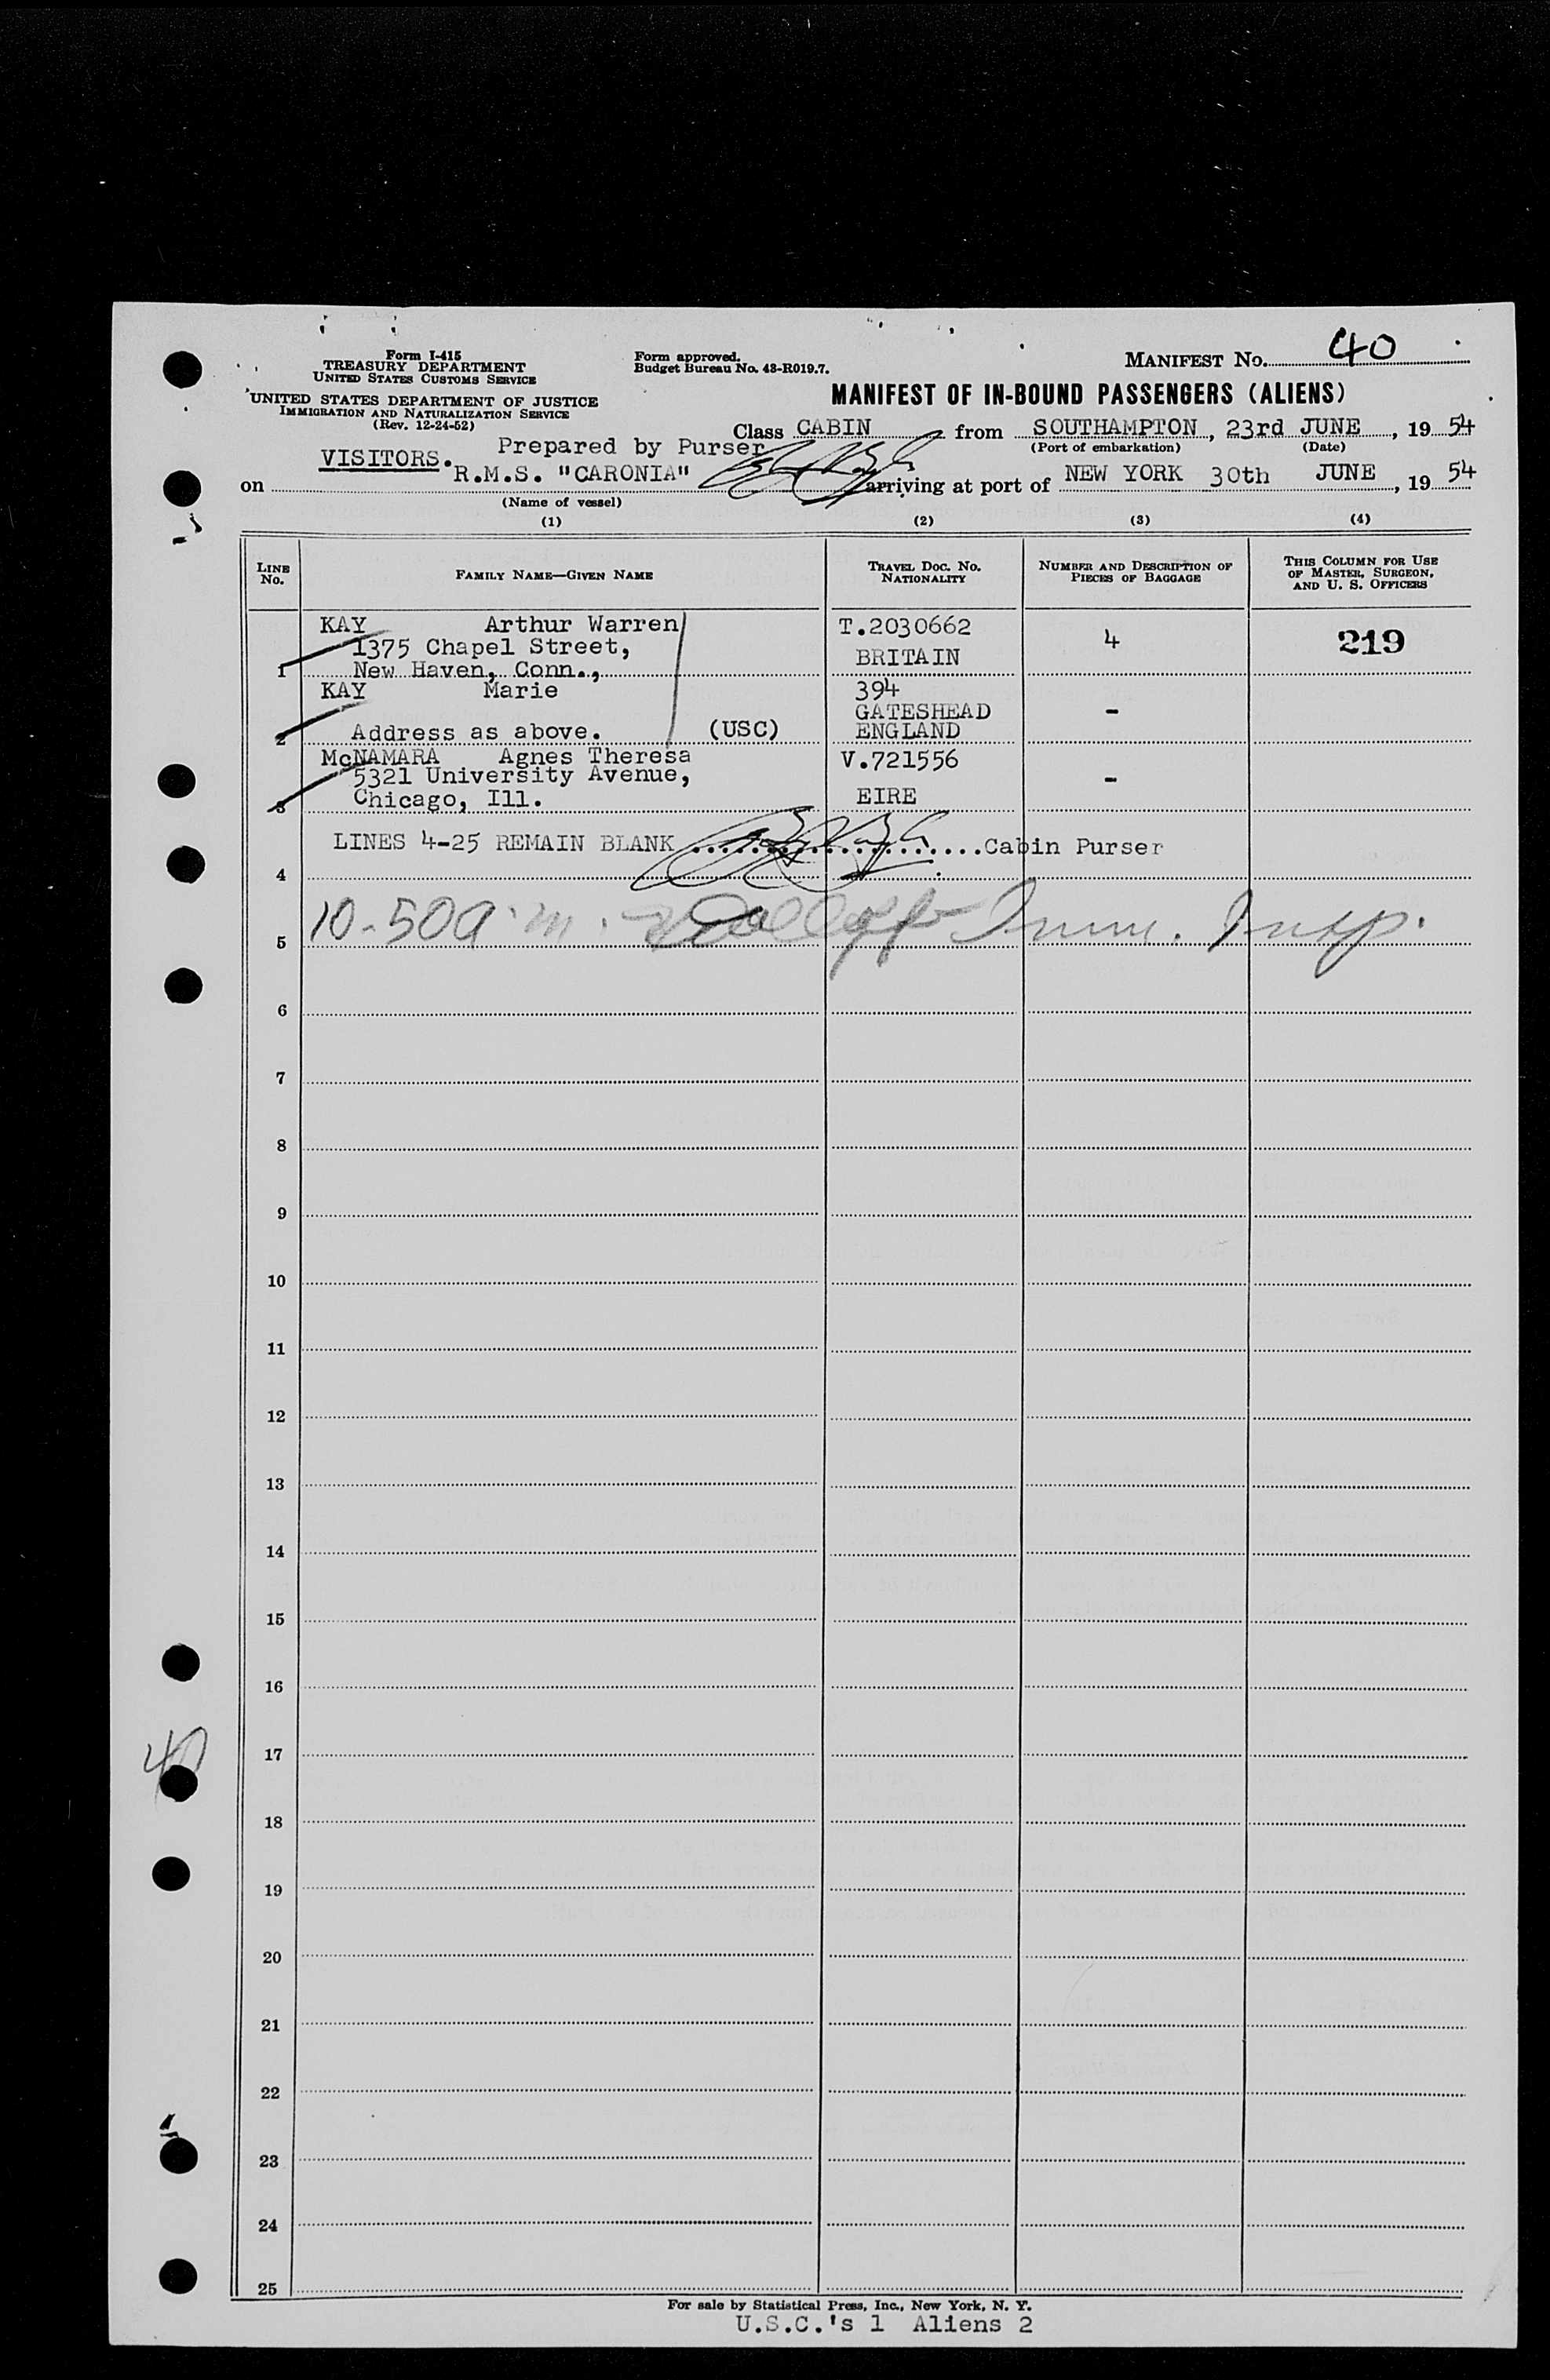 Form I-415
TREASURY DEPARTMENT
UNITED STATES CUSTOMS SERVICE
UNITED STATES DEPARTMENT OF JUSTICE
IMMIGRATION AND NATURALIZATION SERVICE
(Rev. 12-24-52)
Form approved.
Budget Bureau No. 43-R019.7.
MANIFEST NO. 40
MANIFEST OF IN-BOUND PASSENGERS (ALIENS)
Class CABIN from SOUTHAMPTON, 23rd JUNE, 1954
(Port of embarkation) (Date)
VISITORS. Prepared by Purser
on R.M.S. "CARONIA" arriving at port of NEW YORK 30th JUNE, 1954
(Name of vessel)
(1) (2) (3) (4)
LINE NO.
FAMILY NAME—GIVEN NAME
TRAVEL DOC. NO.
NATIONALITY
NUMBER AND DESCRIPTION OF
PIECES OF BAGGAGE
THIS COLUMN FOR USE
OF MASTER, SURGEON,
AND U. S. OFFICERS
KAY Arthur Warren T.2030662
1375 Chapel Street, 4 219
1 New Haven, Conn., BRITAIN
KAY Marie 394
GATESHEAD -
2 Address as above. (USC) ENGLAND
McNAMARA Agnes Theresa V.721556
5321 University Avenue, -
3 Chicago, Ill. EIRE
LINES 4-25 REMAIN BLANK ....................Cabin Purser
4
5 10-50 a.m. Imm. Insp.
6
7
8
9
10
11
12
13
14
15
16
40
17
18
19
20
21
22
23
24
25
For sale by Statistical Press, Inc., New York, N. Y.
U.S.C.'s 1 Aliens 2